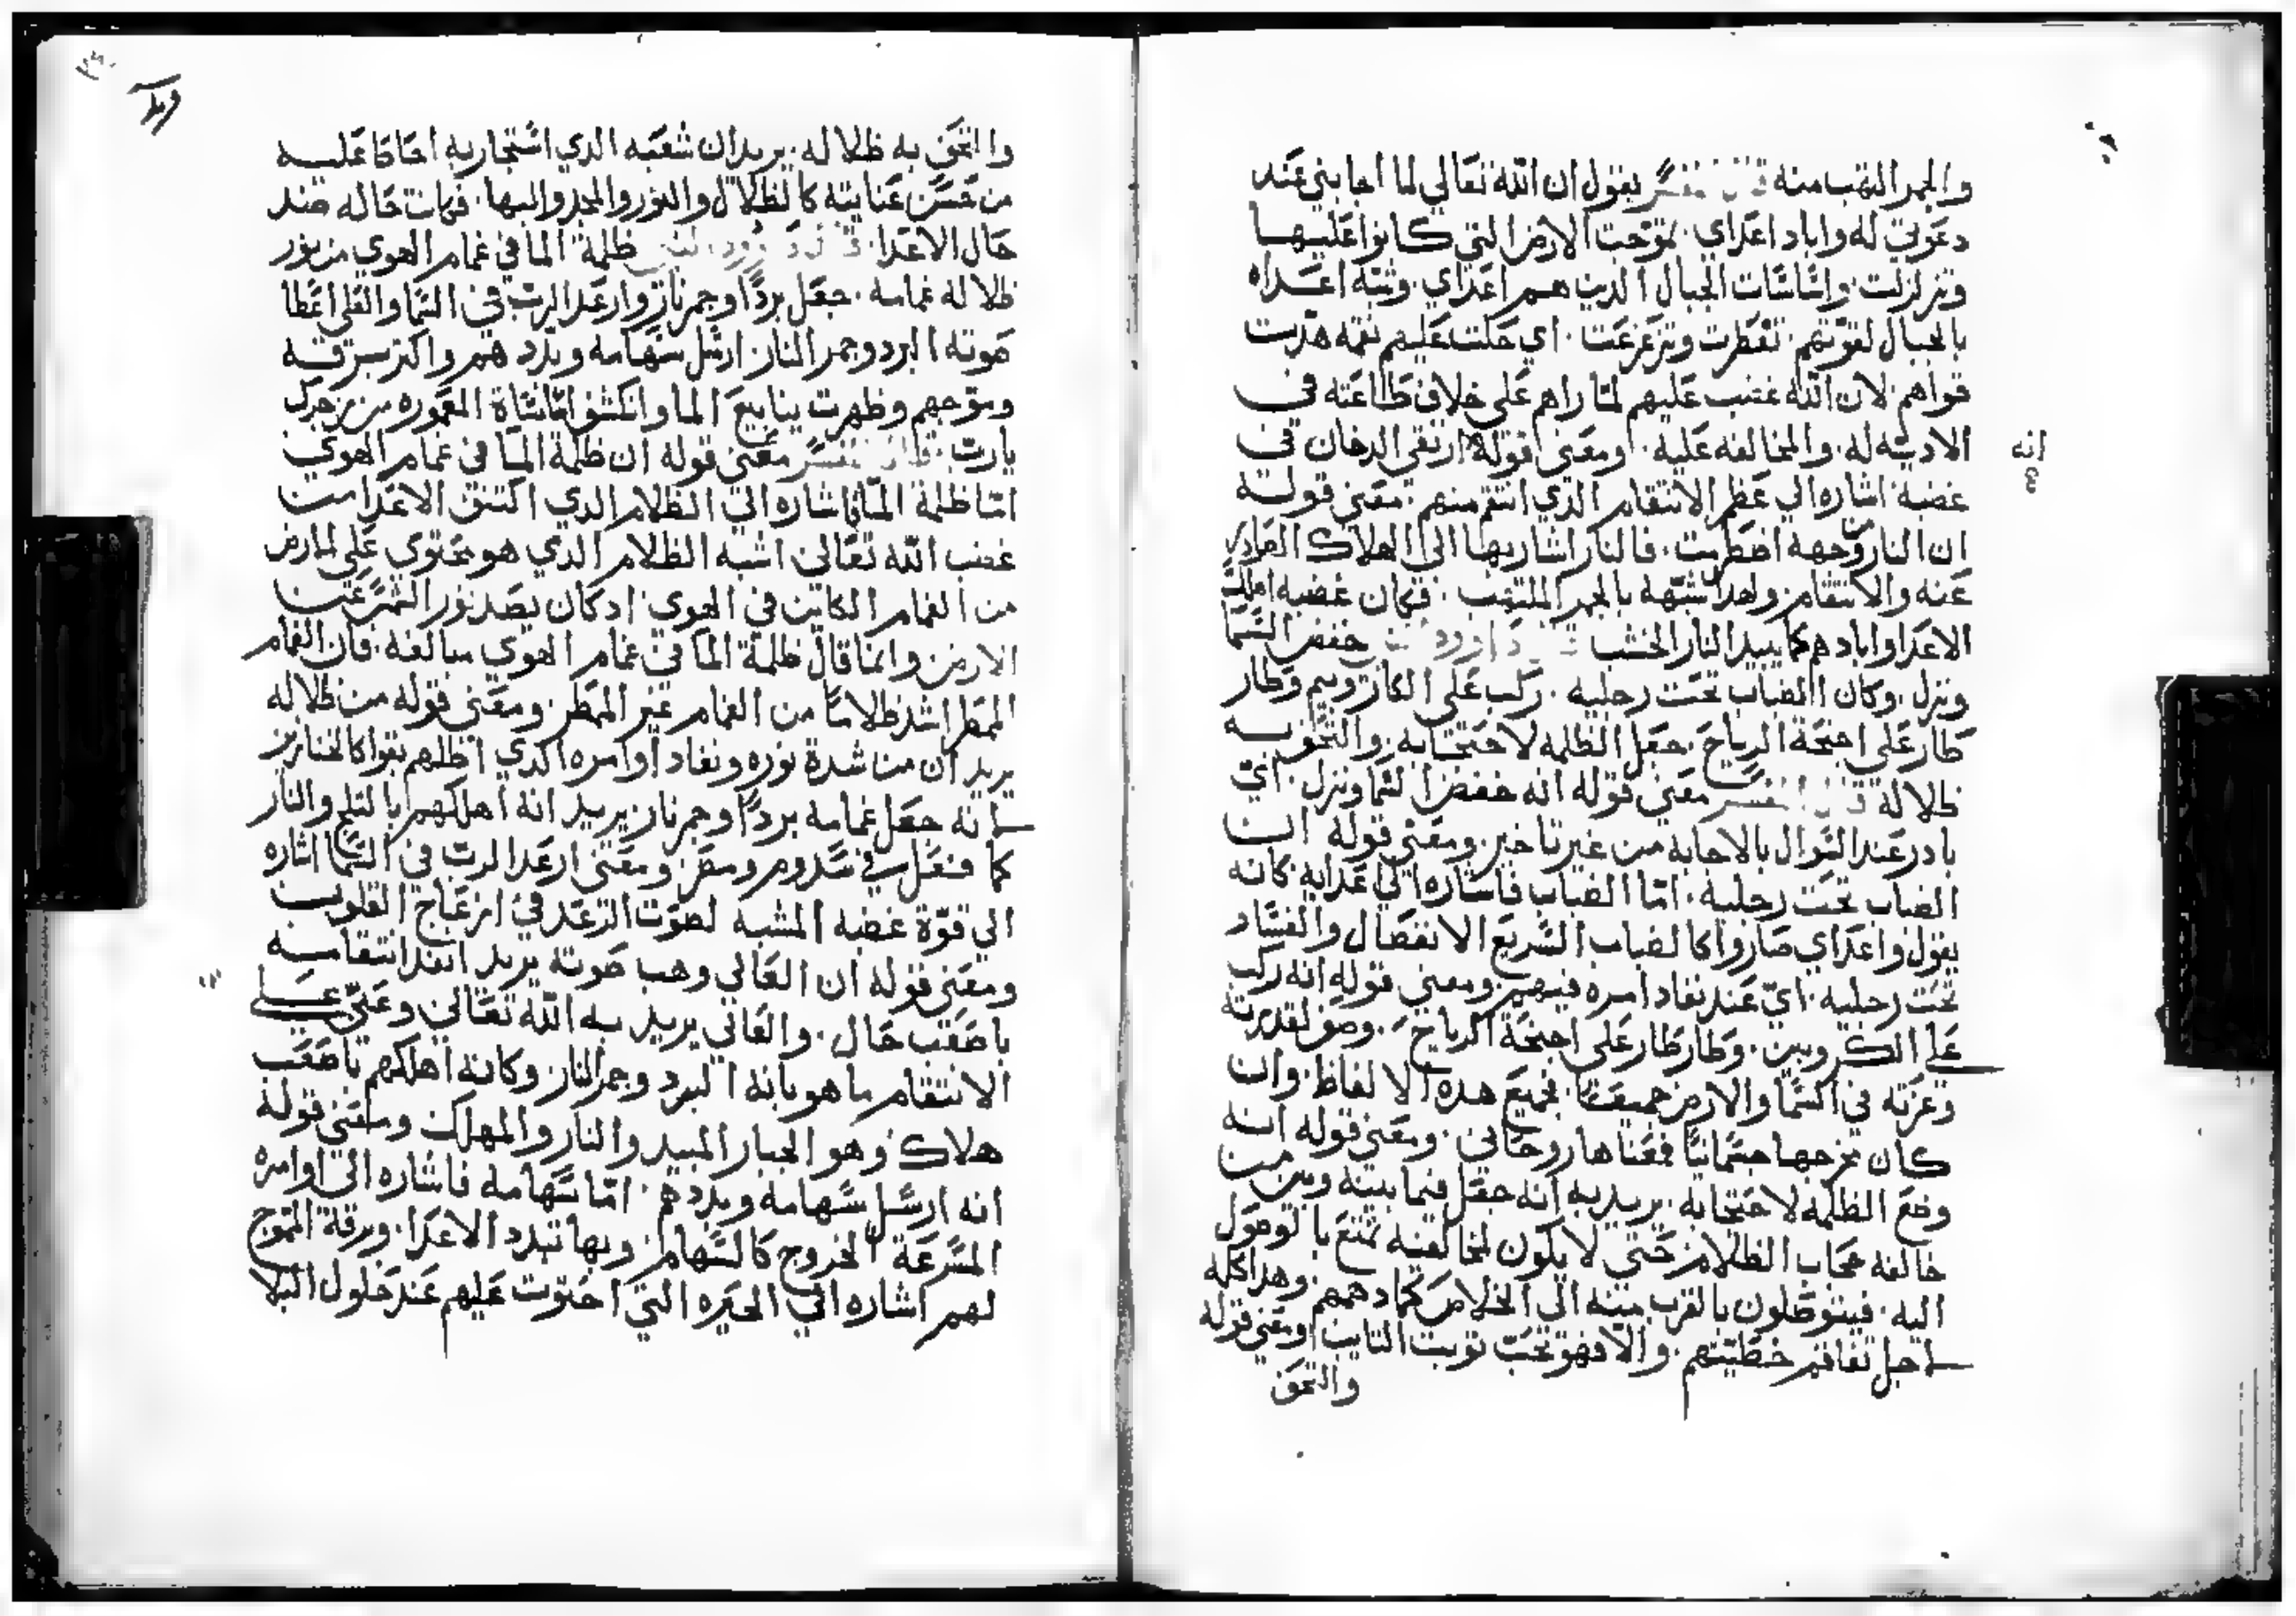 والجمر التهب منه قال المفسر يقول ان الله تعالي لما اجابني عند
دعوتي له واباد اعداي. تموجت الارض التي كانوا عليها
وتزلزلت واساسات الجبال الدين هم اعداي وشبه اعداه
بالجبال لقوتهم. تفطرت وتزعزعت. اي حلت عليهم نقمه هزت
قواهم لان الله غضب عليهم لما راهم علي خلاف طاعته في
الاديه له. والمخالفه عليه. ومعني قوله ارتقي الدخان في
انه
غضبه اشاره الي عظم الانتقام الدي انتقم منهم. معني قوله
ان النار من وجهه اضطرمت. فالنار اشار بها الي الهلاك الصادر
عنه والانتقام. ولهدا شبهه بالجمر الملتهب. فكان غضبه اهلك
الاعدا وابادهم كما يبيد النار الخشب قال داوود النبي خفض السما
ونزل. وكان الضباب تحت رجليه. ركب علي الكاروبيم وطار
طار علي اجنحة الرياح. جعل الظلمه لاحتجابه. والتحف به
ظلاله قال المفسر معني قوله انه خفض السما ونزل. اي
بادر عند السوال بالاجابه من غير تاخير. ومعني قوله ان
الضباب تحت رجليه. اما الضباب فاشاره الي عدابه كانه
يقول واعداي صاروا كالضباب السريع الانفصال والفساد
تحت رجليه. اي عند نفاد امره فيهم. ومعني قوله انه ركب
علي الكروبيين. وطار طار علي اجنحة الرياح. وصف لقدرته
وعزته في السما والارض جميعا. فجميع هده الالفاظ. وان
كان مخرجها جسمانيا فمعناها روحاني. ومعني قوله انه
وضع الظلمه لاحتجابه. يريد به انه جعل فيما بينه وبين من
خالفه حجاب الظلام حتي لا يكون لمخالفيه تمتع بالوصول
اليه. فيتوصلون بالقرب منه الي الخلاص كما دهمهم. وهدا كله
احل تفاقم خطيتهم. والا فهو تحب توبت التايب ومعني قوله
والتحف
والتحف به ظلاله. يريد ان شعبه الدي استجار به احاط عليه
من حسن عنايته كالظلال والنور والمجد والبها. فكانت حاله ضد
حال الاعدا. قال داوود النبي ظلمة الما في غمام الهوي من نور
ظلاله غمامه. جعل بردا وجمر نار وارعد الرب في السما والعلي اعطا
صوته البرد وجمر النار. ارسل سهامه وبددهم واكتر برقه
وموجهم وظهرت ينابيع الما وانكشفوا اساساة المعموره من زجرك
يارب. قال المفسر معني قوله ان ظلمة الما في غمام الهوي
اما ظلمة الما فاشاره الي الظلام الدي اكتنف الاعدا من
غضب الله تعالي اشبه الظلام الدي هو محتوي علي الارض
من الغمام الكاين في الهوي. ادكان يصد نور الشمس عن
الارض وانما قال ظلمة الما في غمام الهوي مبالغه. فان الغمام
الممطر اشد ظلاما من الغمام غير الممطر. ومعني قوله من ظلاله
يريد ان من شدة نوره ونفاد اوامره الدي اظلهم بقوا كالخنازير
انه جعل غمامه بردا وجمر نار يريد انه اهلكهم بالتلج والنار
كما فعل في سدوم ومصر ومعني ارعد الرب في السما اشاره
الي قوة غضبه المشبه لصوت الرعد في ازعاج القلوب
ومعني قوله ان العالي وهب صوته يريد انفد انتقامه
باصعب حال. والعالي يريد به الله تعالي وعني علي
الانتقام ما هو بانه البرد وجمر النار. وكانه اهلكهم باصعب
هلاك وهو الجبار المبيد والنار والمهلك ومعني قوله
انه ارسل سهامه وبددهم. اما سهامه فاشاره الي اوامره
المسرعة الخروج كالسهام. وبها تبدد الاعدا. وبرقة الموج
لهم اشاره الي الحيره التي احتوت عليهم عند حلول البلا